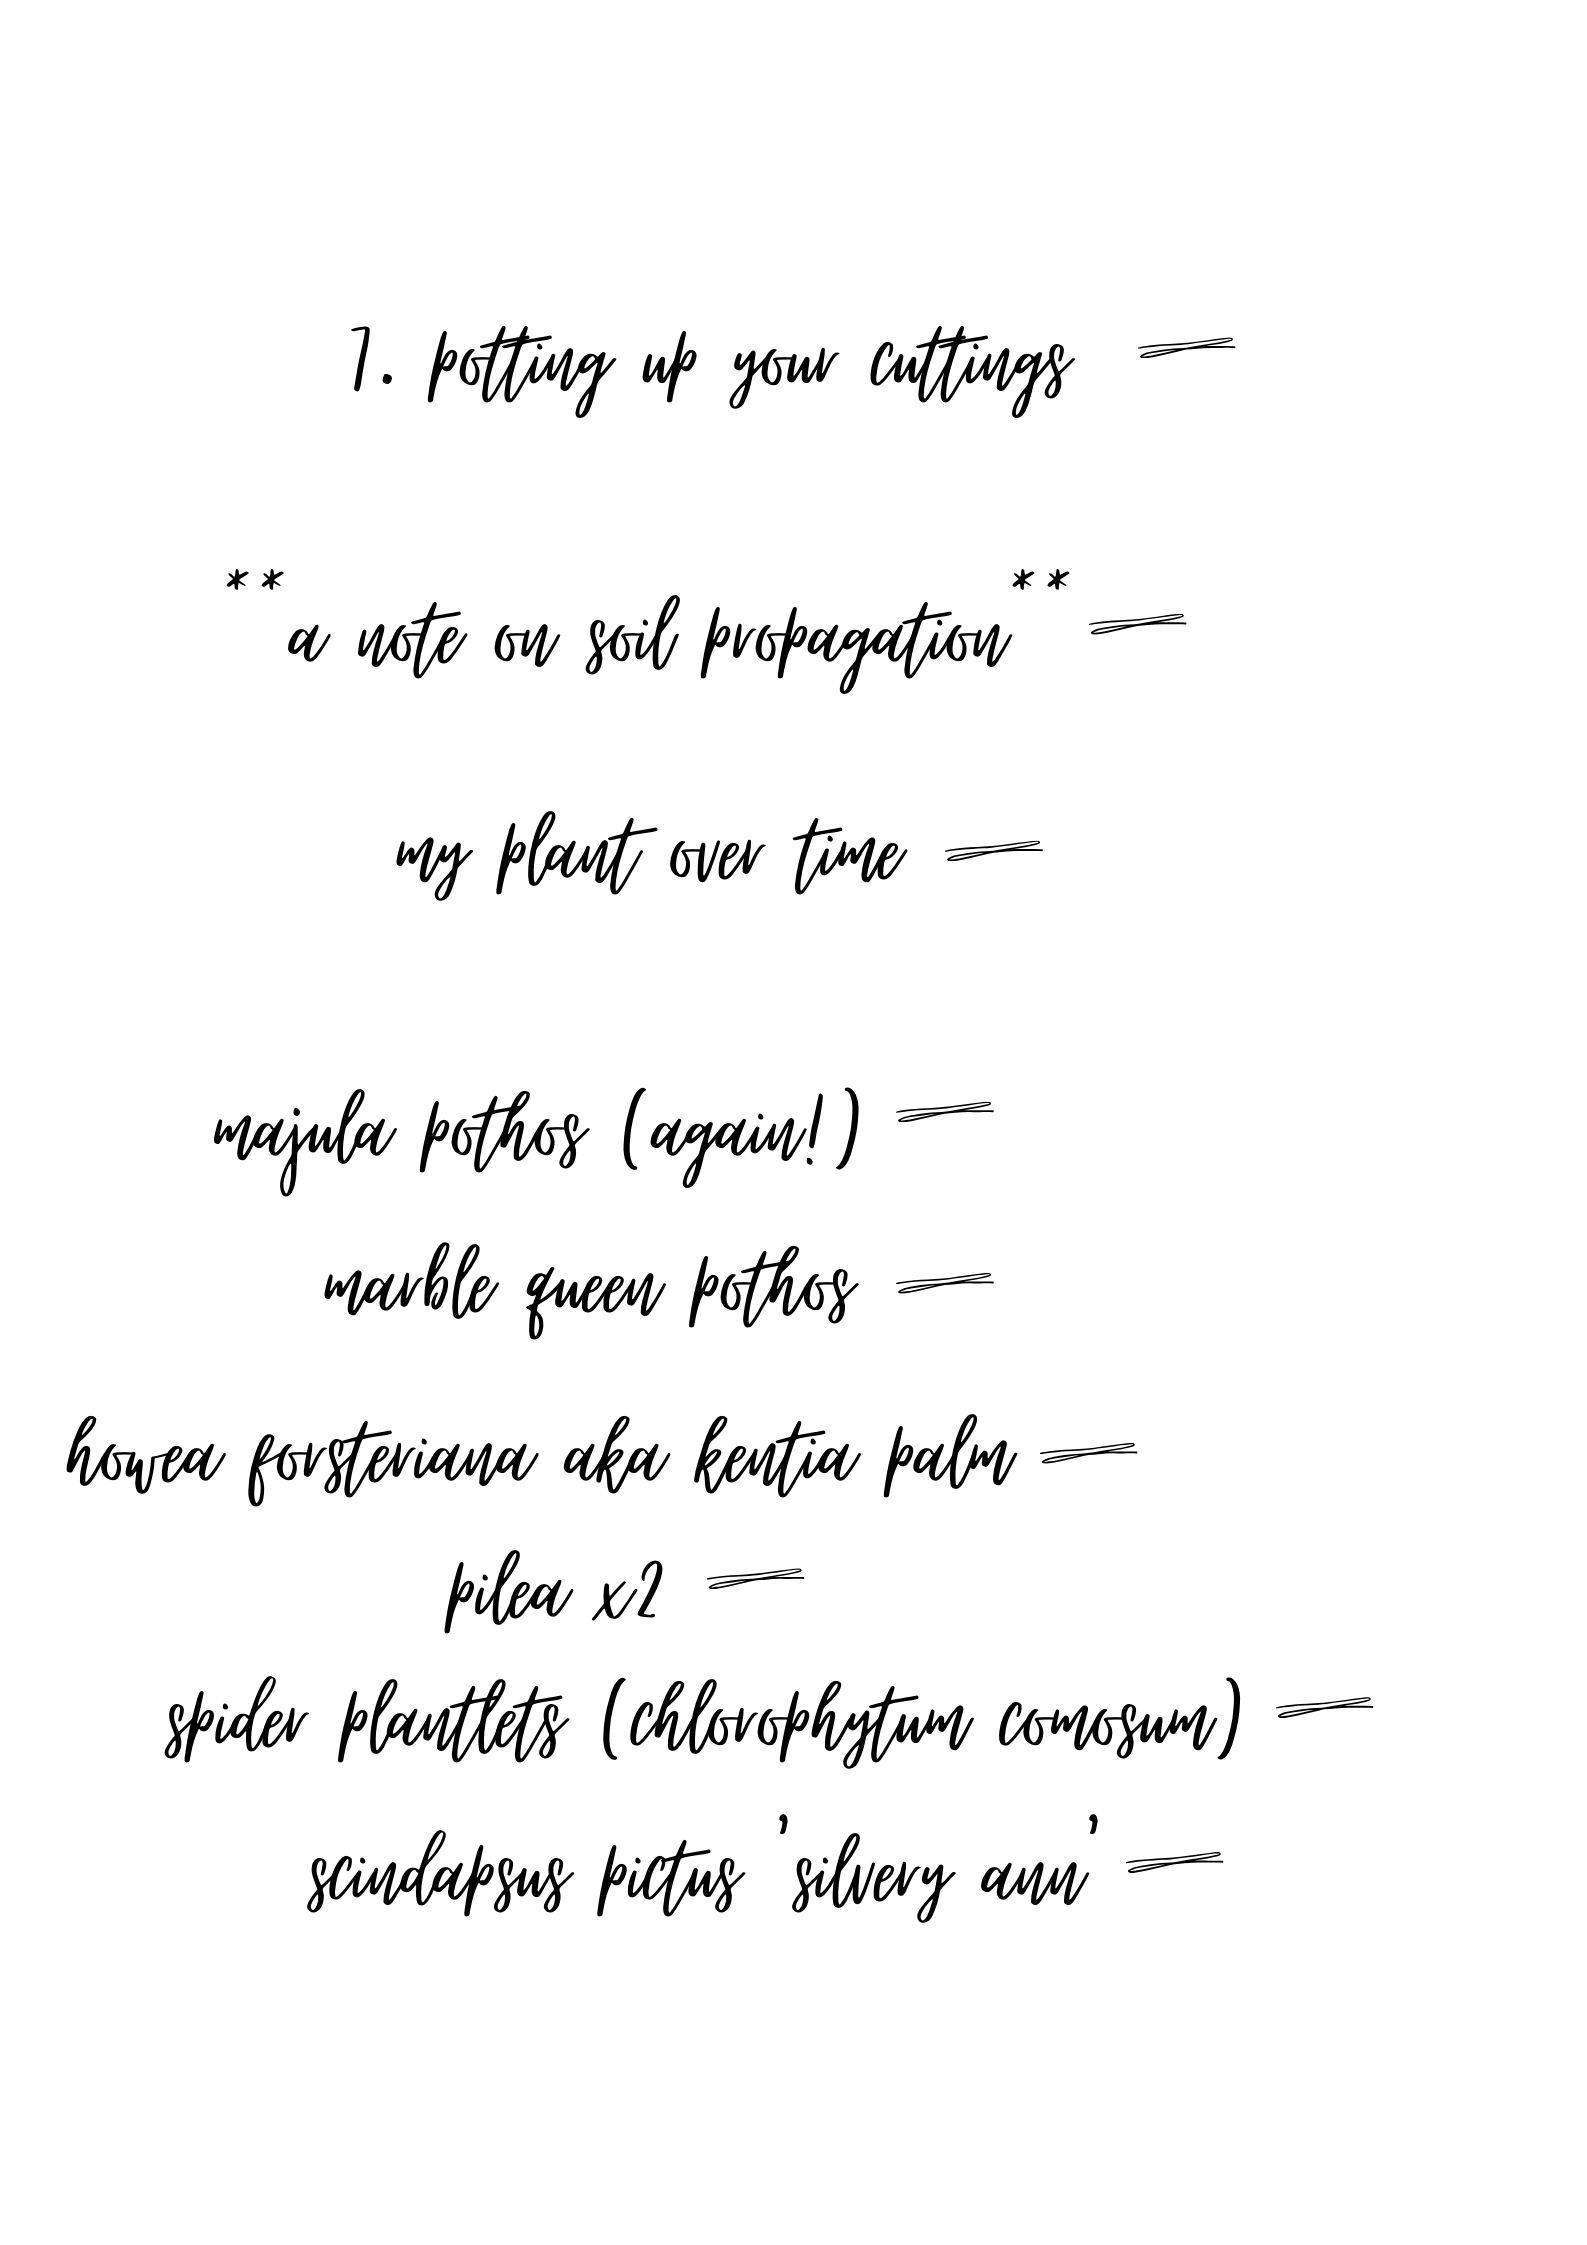 7. potting up your cuttings
**a note on soil propagation**
my plant over time
majula pothos (again!)
marble queen pothos
howea forsteriana aka kentia palm
pilea x2
spider plantlets (chlorophytum comosum)
scindapsus pictus 'silvery ann'